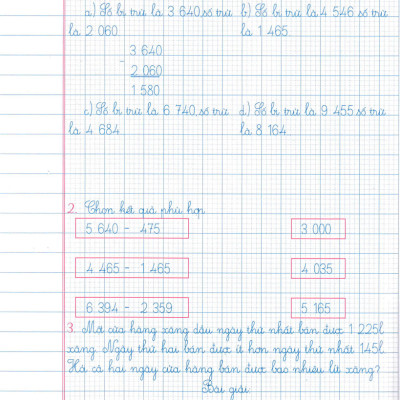 a) Số bị trừ là 3 640 số trừ b) Số bị trừ là 4 546 số trừ
là 2 060 là 1 465
3 640
-
2 060
1 580
c) Số bị trừ là 6 740 số trừ d) Số bị trừ là 9 455 số trừ
là 4 684 là 8 164
2. Chọn kết quả phù hợp
5 640 - 475 3 000
4 465 - 1 465 4 035
6 394 - 2 359 5 165
3. Một cửa hàng xăng dầu ngày thứ nhất bán được 1 225l
xăng. Ngày thứ hai bán được ít hơn ngày thứ nhất 145l.
Hỏi cả hai ngày cửa hàng bán được bao nhiêu lít xăng?
Bài giải